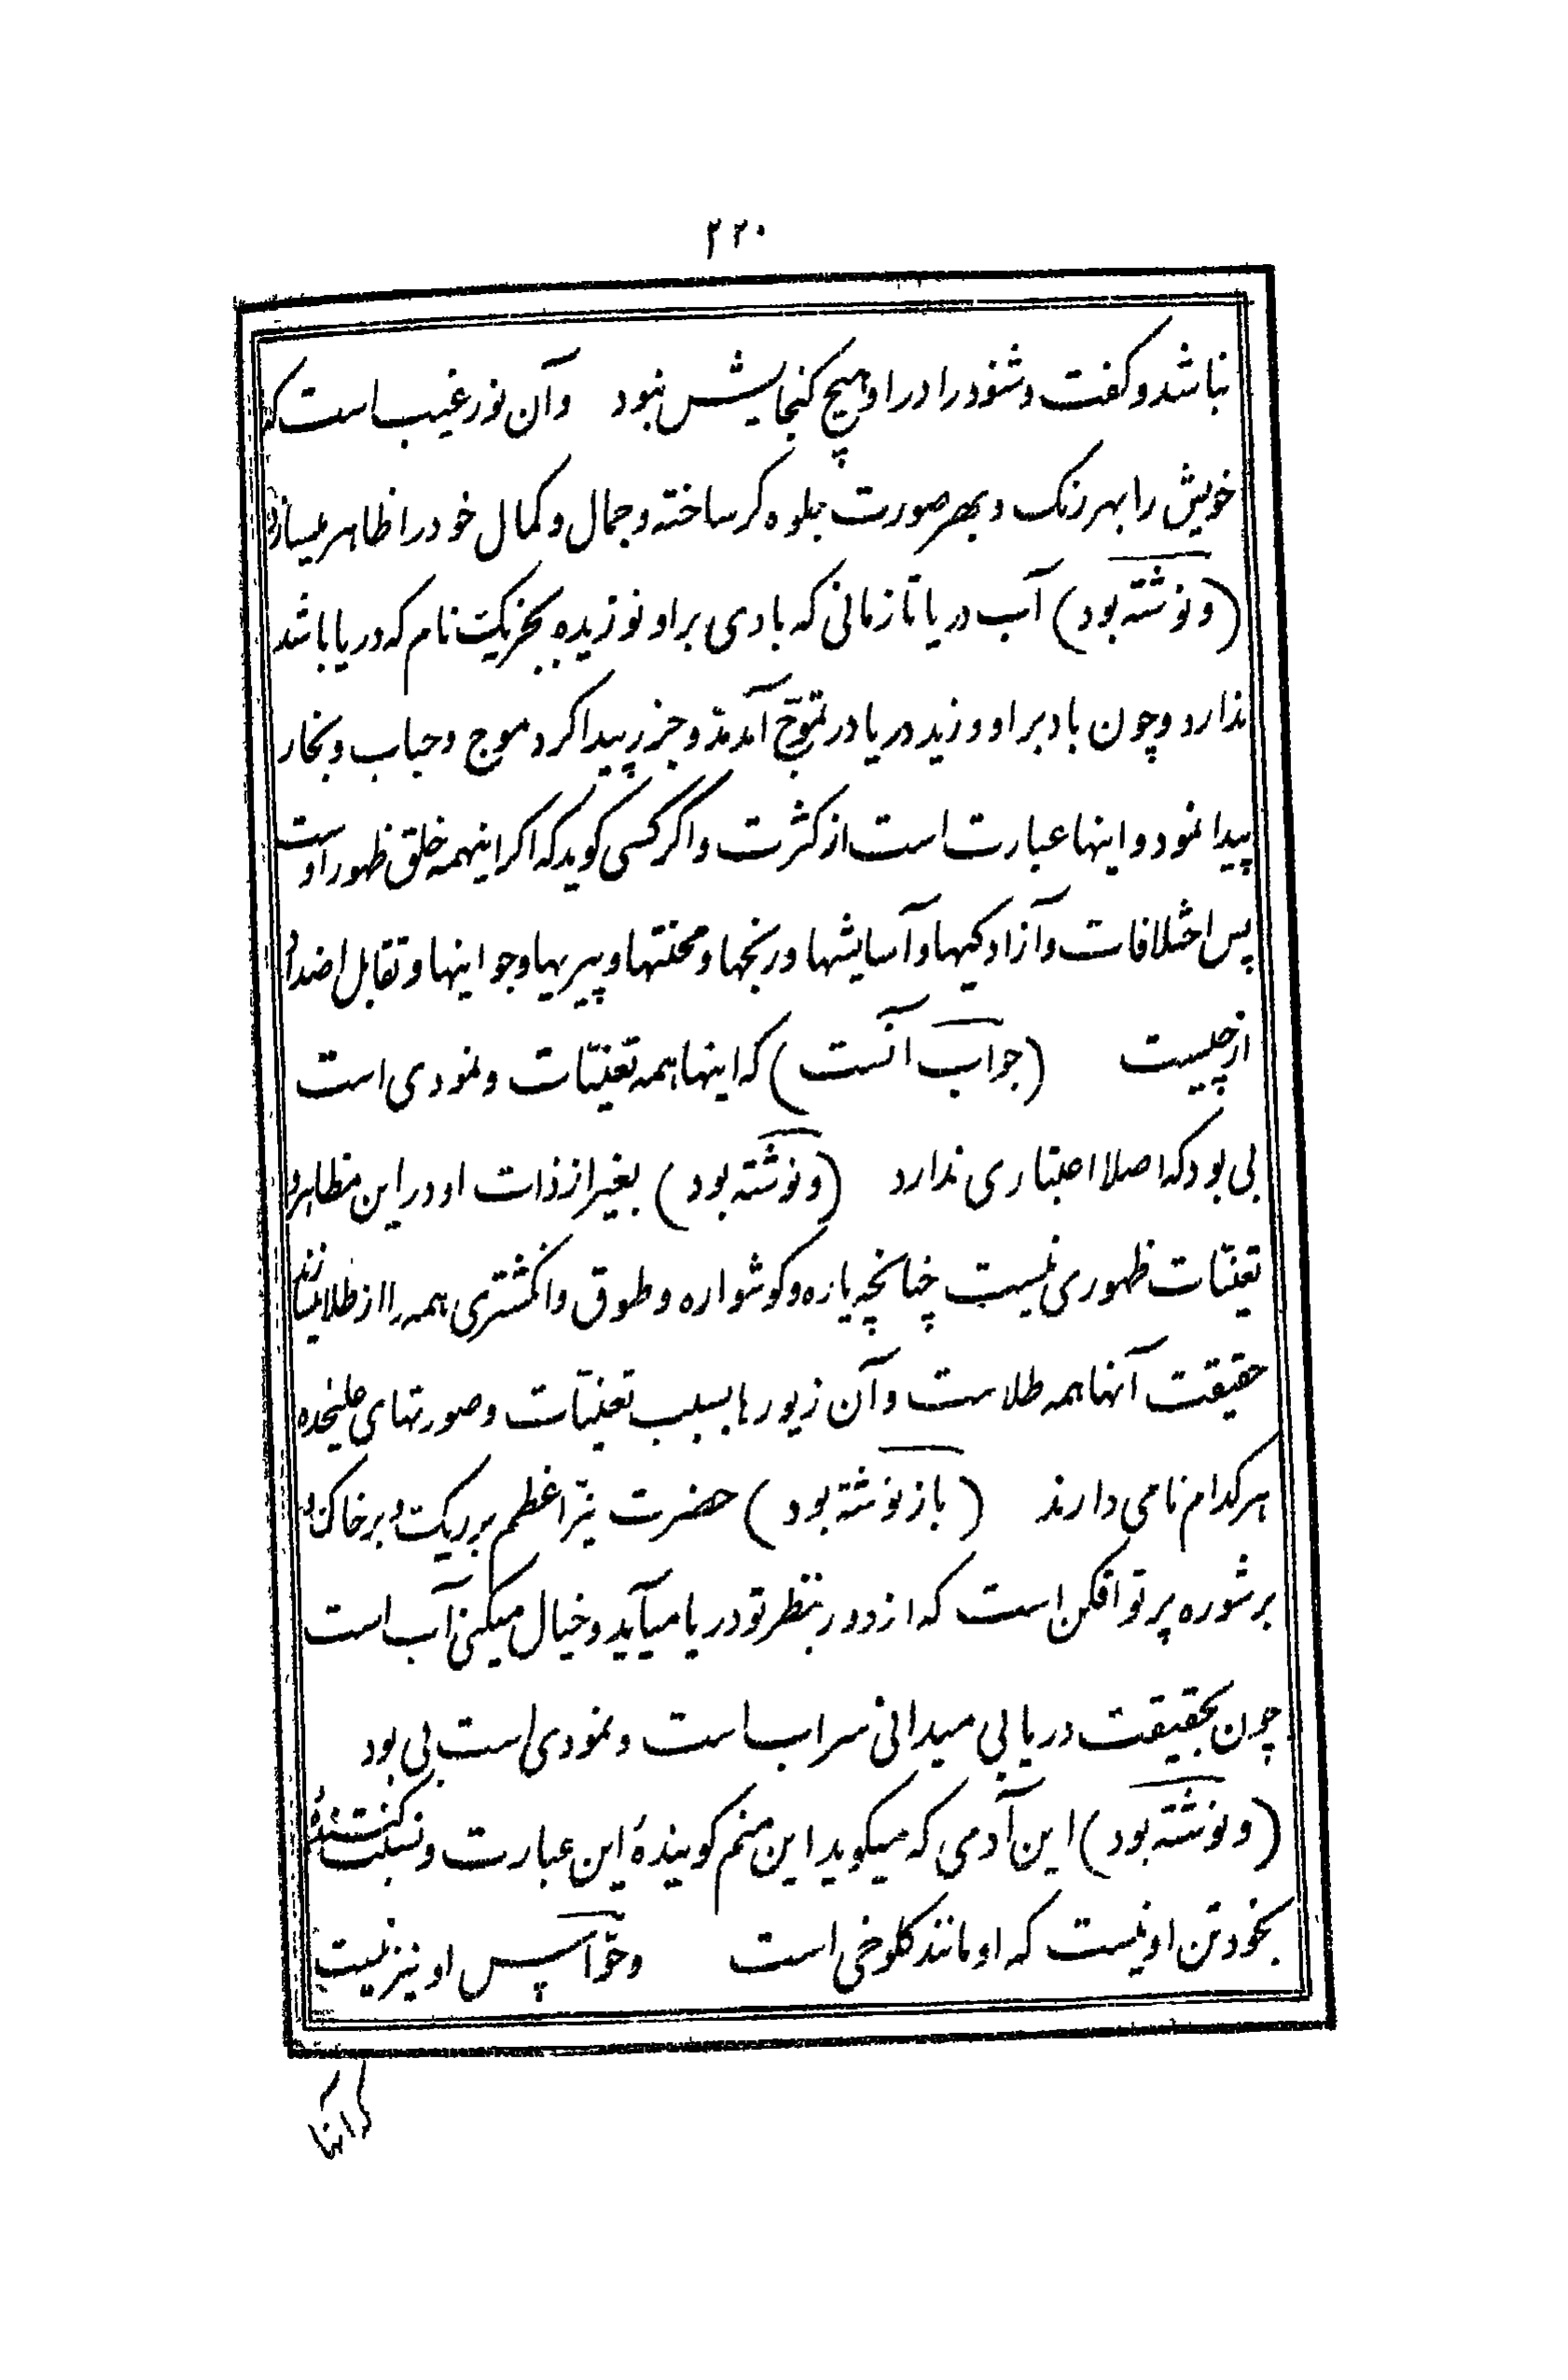 ۲۲۰
نباشد و کفت و شنود را در او هیچ کنجایش نبود وآن نور غیب است که
خویش را بهر رنک و بهر صورت جلوه کر ساخته و جمال و کمال خود را ظاهر میسازد
(و نوشته بود) آب دریا تا زمانی که بادی بر او نوزیده بجز یکت نام که دریا باشد
ندارد و چون باد بر او وزید دریا در تموّج آمد مدّ و جزر پیدا کرد موج و حباب و بخار
پیدا نمود و اینها عبارت است از کثرت و اگر کسی کوید که اکر اینهمه خلق ظهور اوست
پس اختلافات و آزادکیها و آسایشها و رنجها و محنتها و پیریها و جوانیها و تقابل اضداد
از چیست (جواب آنست) که اینها همه تعیّنات و نمودی است
بی بود که اصلا اعتباری ندارد (و نوشته بود) بغیر از ذات او در این مظاهر و
تعیّنات ظهوری نیست چنانچه یاره و کوشواره و طوق و انکشتری همه را از طلا میسازند
حقیقت آنها همه طلاست و آن زیورها بسبب تعیّنات و صورتهای علیحده
هر کدام نامی دارند (باز نوشته بود) حضرت نیّر اعظم بر ریکت و بر خاک و
بر شوره پرتو افکن است که از دور بنظر تو دریا میآید و خیال میکنی آب است
چون بحقیقت دریابی میدانی سراب است و نمودی است بی بود
(و نوشته بود) این آدمی که میکوید این منم کویندهٔ این عبارت و نسبت کنندهٔ
بخود تن او نیست که او مانند کلوخی است و حوّاس او نیز نیست